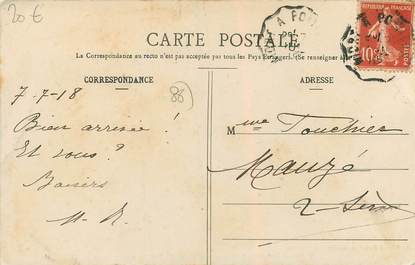 20€
A POI
CARTE POSTALE
La Correspondance au recto n'est pas acceptée par tous les Pays Étrangers. (Se renseigner
CORRESPONDANCE
ADRESSE
7-7-18
86
Bien arrivée !
Et vous ?
Baisers
M.R.
Mme Touchier
Mauzé
2-Sèvres
10